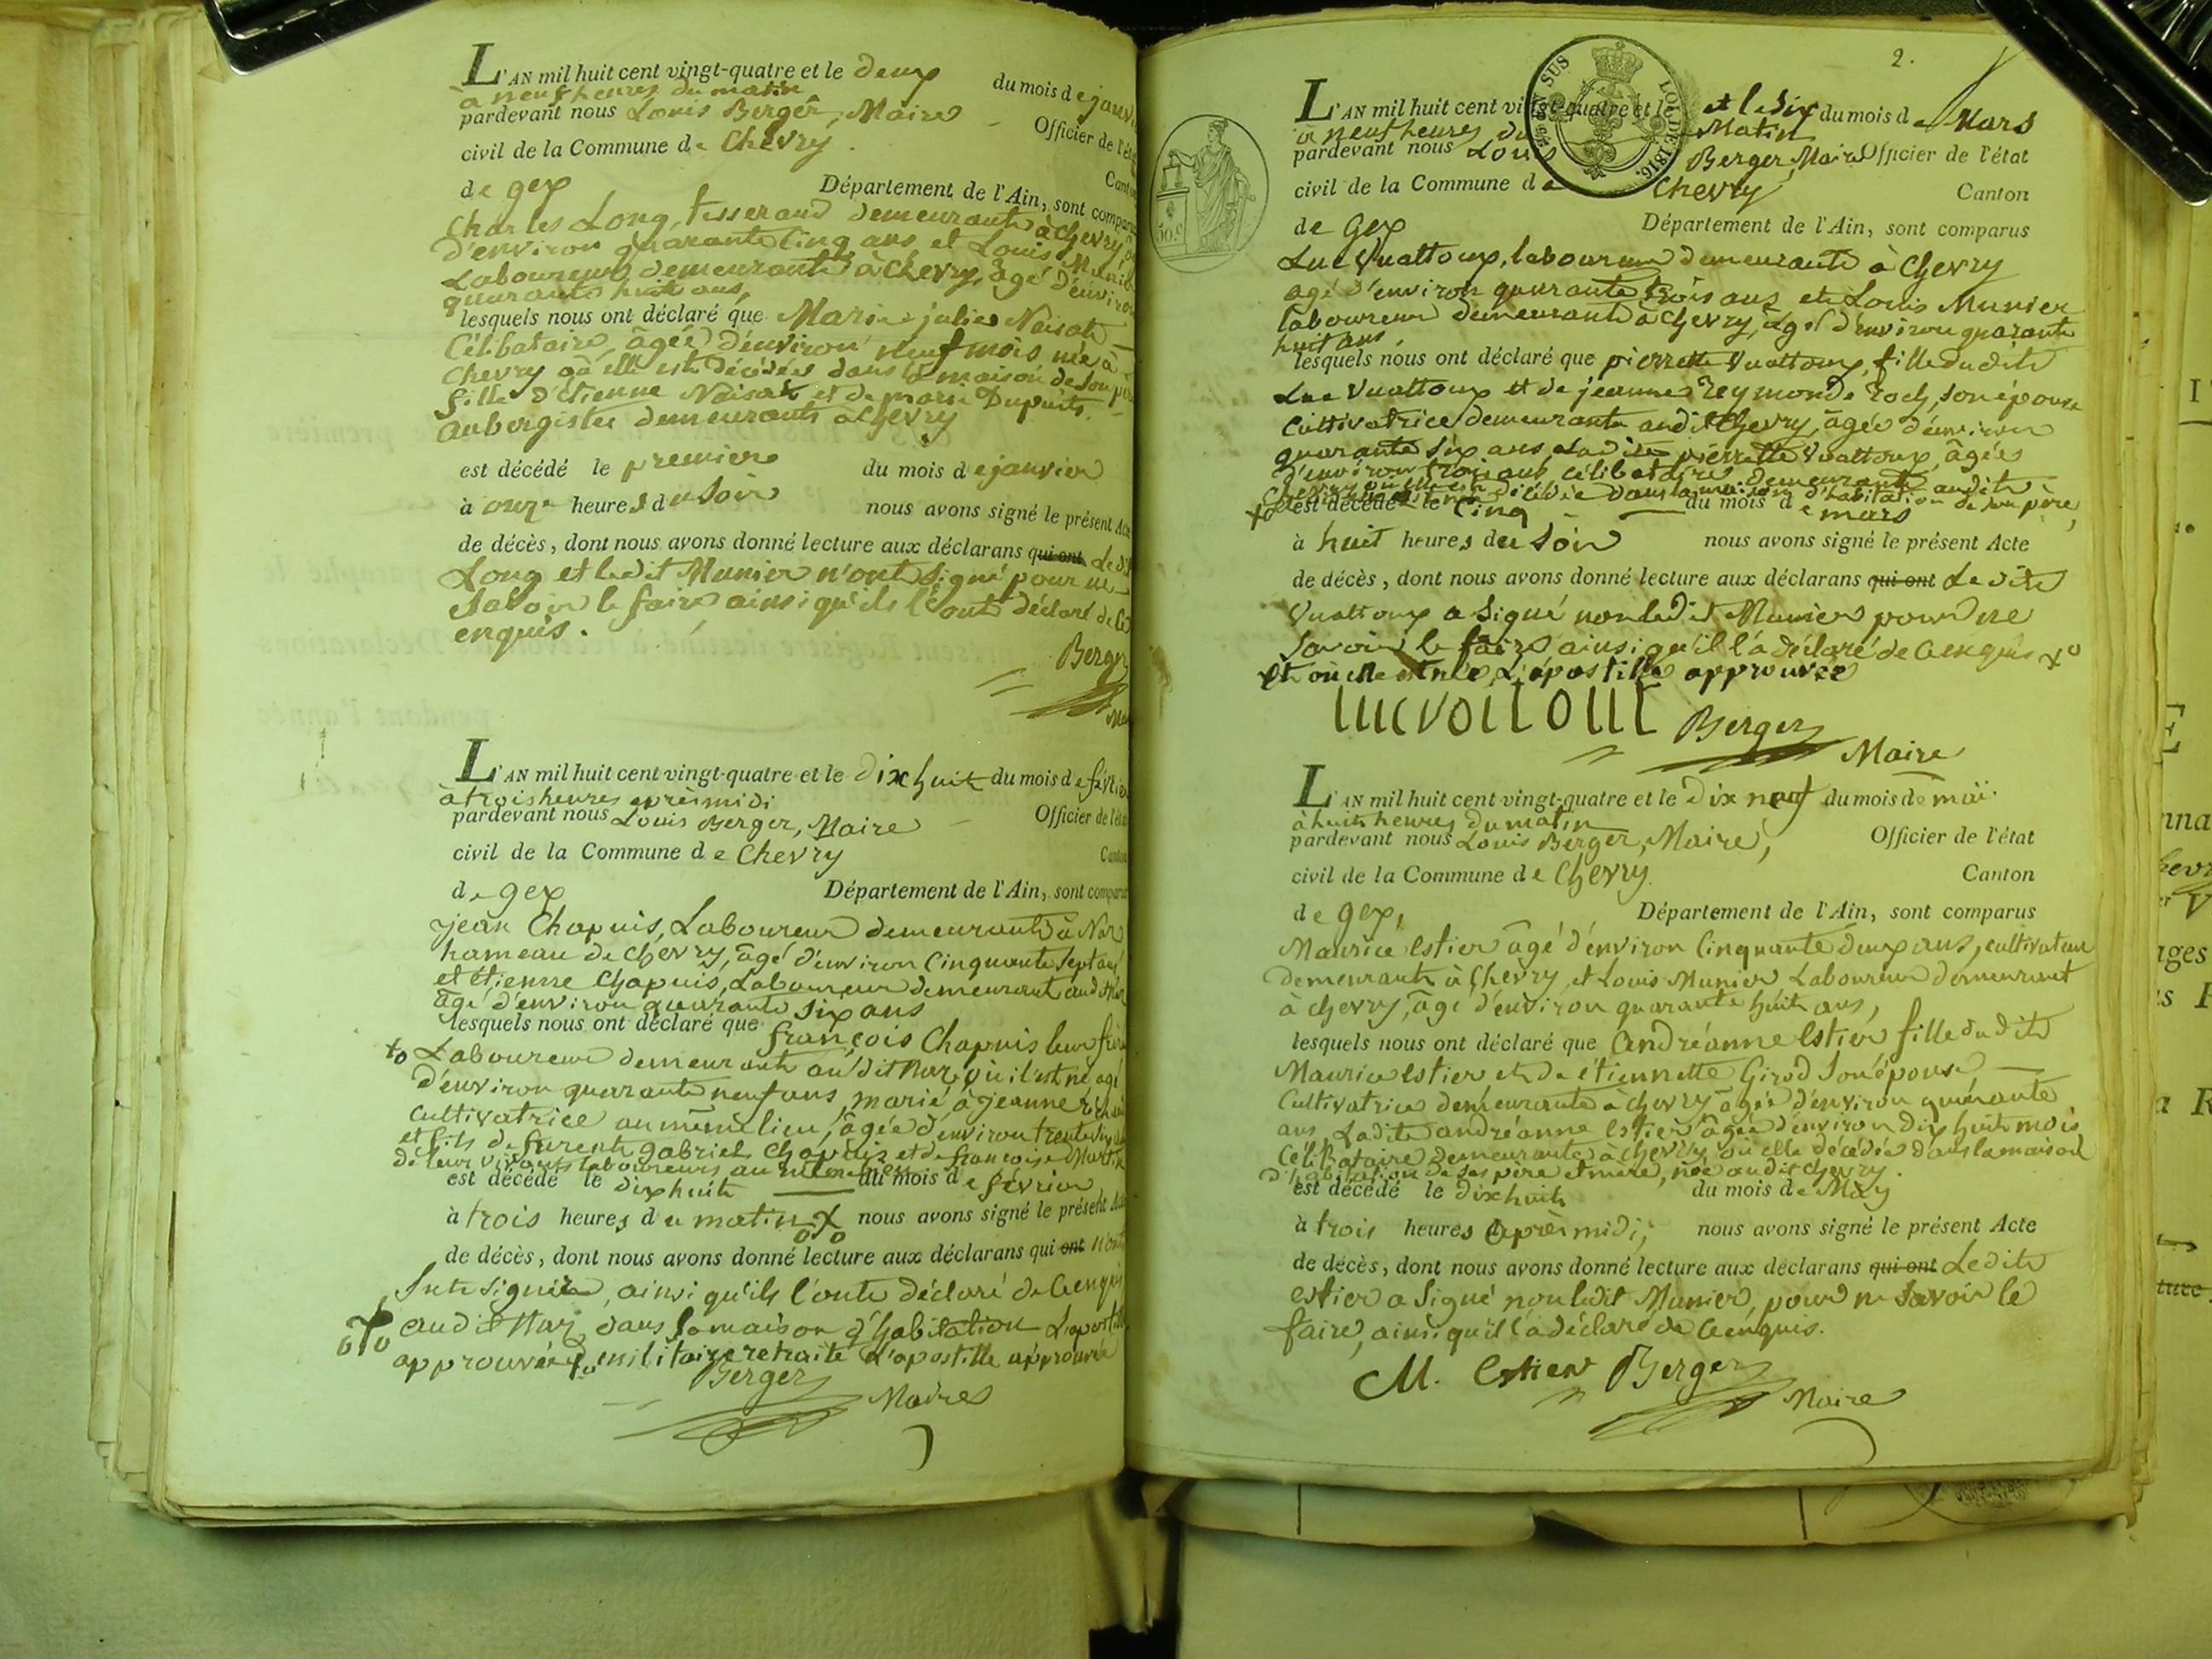 L'AN mil huit cent vingt-quatre et le deux du mois de janvi
à neuf heures du matin
pardevant nous Louis Berger, Maire Officier de l'éta
civil de la Commune de Chevry. Canton
de gex Département de l'Ain, sont compar
Charles Long, tisserand demeurant à Chevry,
d'environ quarante cinq ans, et Louis Munier
Laboureur demeurant à Chevry, âgé d'environ
quarante huit ans,
lesquels nous ont déclaré que Marie julie Naisat
Célibataire, âgée d'environ neuf mois née à
Chevry où elle est décédée dans la maison de son père
fille d'étienne Naisat et de marie Dupuits.
aubergistes demeurants à Chevry
est décédé le premier du mois de janvier
à onze heures du Soir nous avons signé le présent Ac
de décès, dont nous avons donné lecture aux déclarans qui ont Ledit
Long et ledit Munier n'ont Signé pour ne
Savoir le faire ainsi qu'ils l'ont déclaré de Ce
enquis.
Berger
L'AN mil huit cent vingt-quatre et le dix huit du mois de février
à trois heures après midi
pardevant nous Louis Berger, Maire Officier de l'éta
civil de la Commune de Chevry Canton
de gex Département de l'Ain, sont compar
jean Chapuis, Laboureur demeurant à Nar
hameau de Chevry, âgé d'environ Cinquante Sept ans
et étienne Chapuis, Laboureur demeurant audit
âgé d'environ quarante six ans
lesquels nous ont déclaré que françois Chapuis leur frère
Laboureur demeurant audit où il est né agé
d'environ quarante neuf ans, marié à jeanne
cultivatrice au même lieu, âgée d'environ trente
et fils de furent gabriel Chapuis et de françoise
de leur vivants laboureurs au même lieu
est décédé le dix huit du mois de février
à trois heures du matin nous avons signé le présent Ac
de décès, dont nous avons donné lecture aux déclarans qui ont n'ont
Sut signer, ainsi qu'ils l'ont déclaré de Ce enquis
audit dans sa maison d'habitation L'apostille
approuvée militaire retraité L'apostille approuvée
Berger
Maire
2.
L'AN mil huit cent vingt-quatre et le et le six du mois de Mars
à neuf heures du Matin
pardevant nous Louis Berger, Maire Officier de l'état
civil de la Commune de Chevry Canton
de Gex Département de l'Ain, sont comparus
Luc Vuattoux, laboureur demeurant à Chevry
agé d'environ quarante trois ans et Louis Munier
laboureur demeurant à Chevry, âgé d'environ quarante
huit ans,
lesquels nous ont déclaré que pierrette Vuattoux, fille dudit
Luc Vuattoux et de jeanne Reymonde Roch, son épouse
Cultivatrice demeurante audit Chevry, âgée d'environ
quarante six ans, Ladite pierrette Vuattoux, âgée
d'environ trois ans, célibataire demeurante audit
Chevry décédée dans la maison d'habitation de son père,
est décédé le Cinq du mois de mars
à huit heures du Soir nous avons signé le présent Acte
de décès, dont nous avons donné lecture aux déclarans qui ont Ledit
Vuattoux a Signé non ledit Munier pour ne
Savoir le faire ainsi qu'il l'a déclaré de Ce enquis
et où elle est née, L'apostille approuvée
Berger
Maire
SUS
LOI DE 1816.
50.c
L'AN mil huit cent vingt-quatre et le dix neuf du mois de maï.
à huit heures du matin
pardevant nous Louis Berger, Maire, Officier de l'état
civil de la Commune de Chevry Canton
de gex, Département de l'Ain, sont comparus
Maurice Estier âgé d'environ Cinquante deux ans, cultivateur
demeurant à Chevry et Louis Munier Laboureur demeurant
à Chevry, âgé d'environ quarante huit ans,
lesquels nous ont déclaré que andréanne Estier fille dudit
Maurice Estier et de étiennette Girod Son épouse,
Cultivatrice demeurante à Chevry âgée d'environ quarante
ans Ladite andréanne Estier âgée d'environ dix huit mois
Célibataire demeurante à Chevry, où elle décédée dans la maison
d'habitation de ses père et mère, née audit Chevry.
est décédé le dix huit du mois de May
à trois heures après midi, nous avons signé le présent Acte
de décès, dont nous avons donné lecture aux déclarans qui ont Ledit
estier a Signé non ledit Munier, pour ne Savoir le
faire, ainsi qu'il l'a déclaré de Ce enquis.
M. Estier Berger
Maire